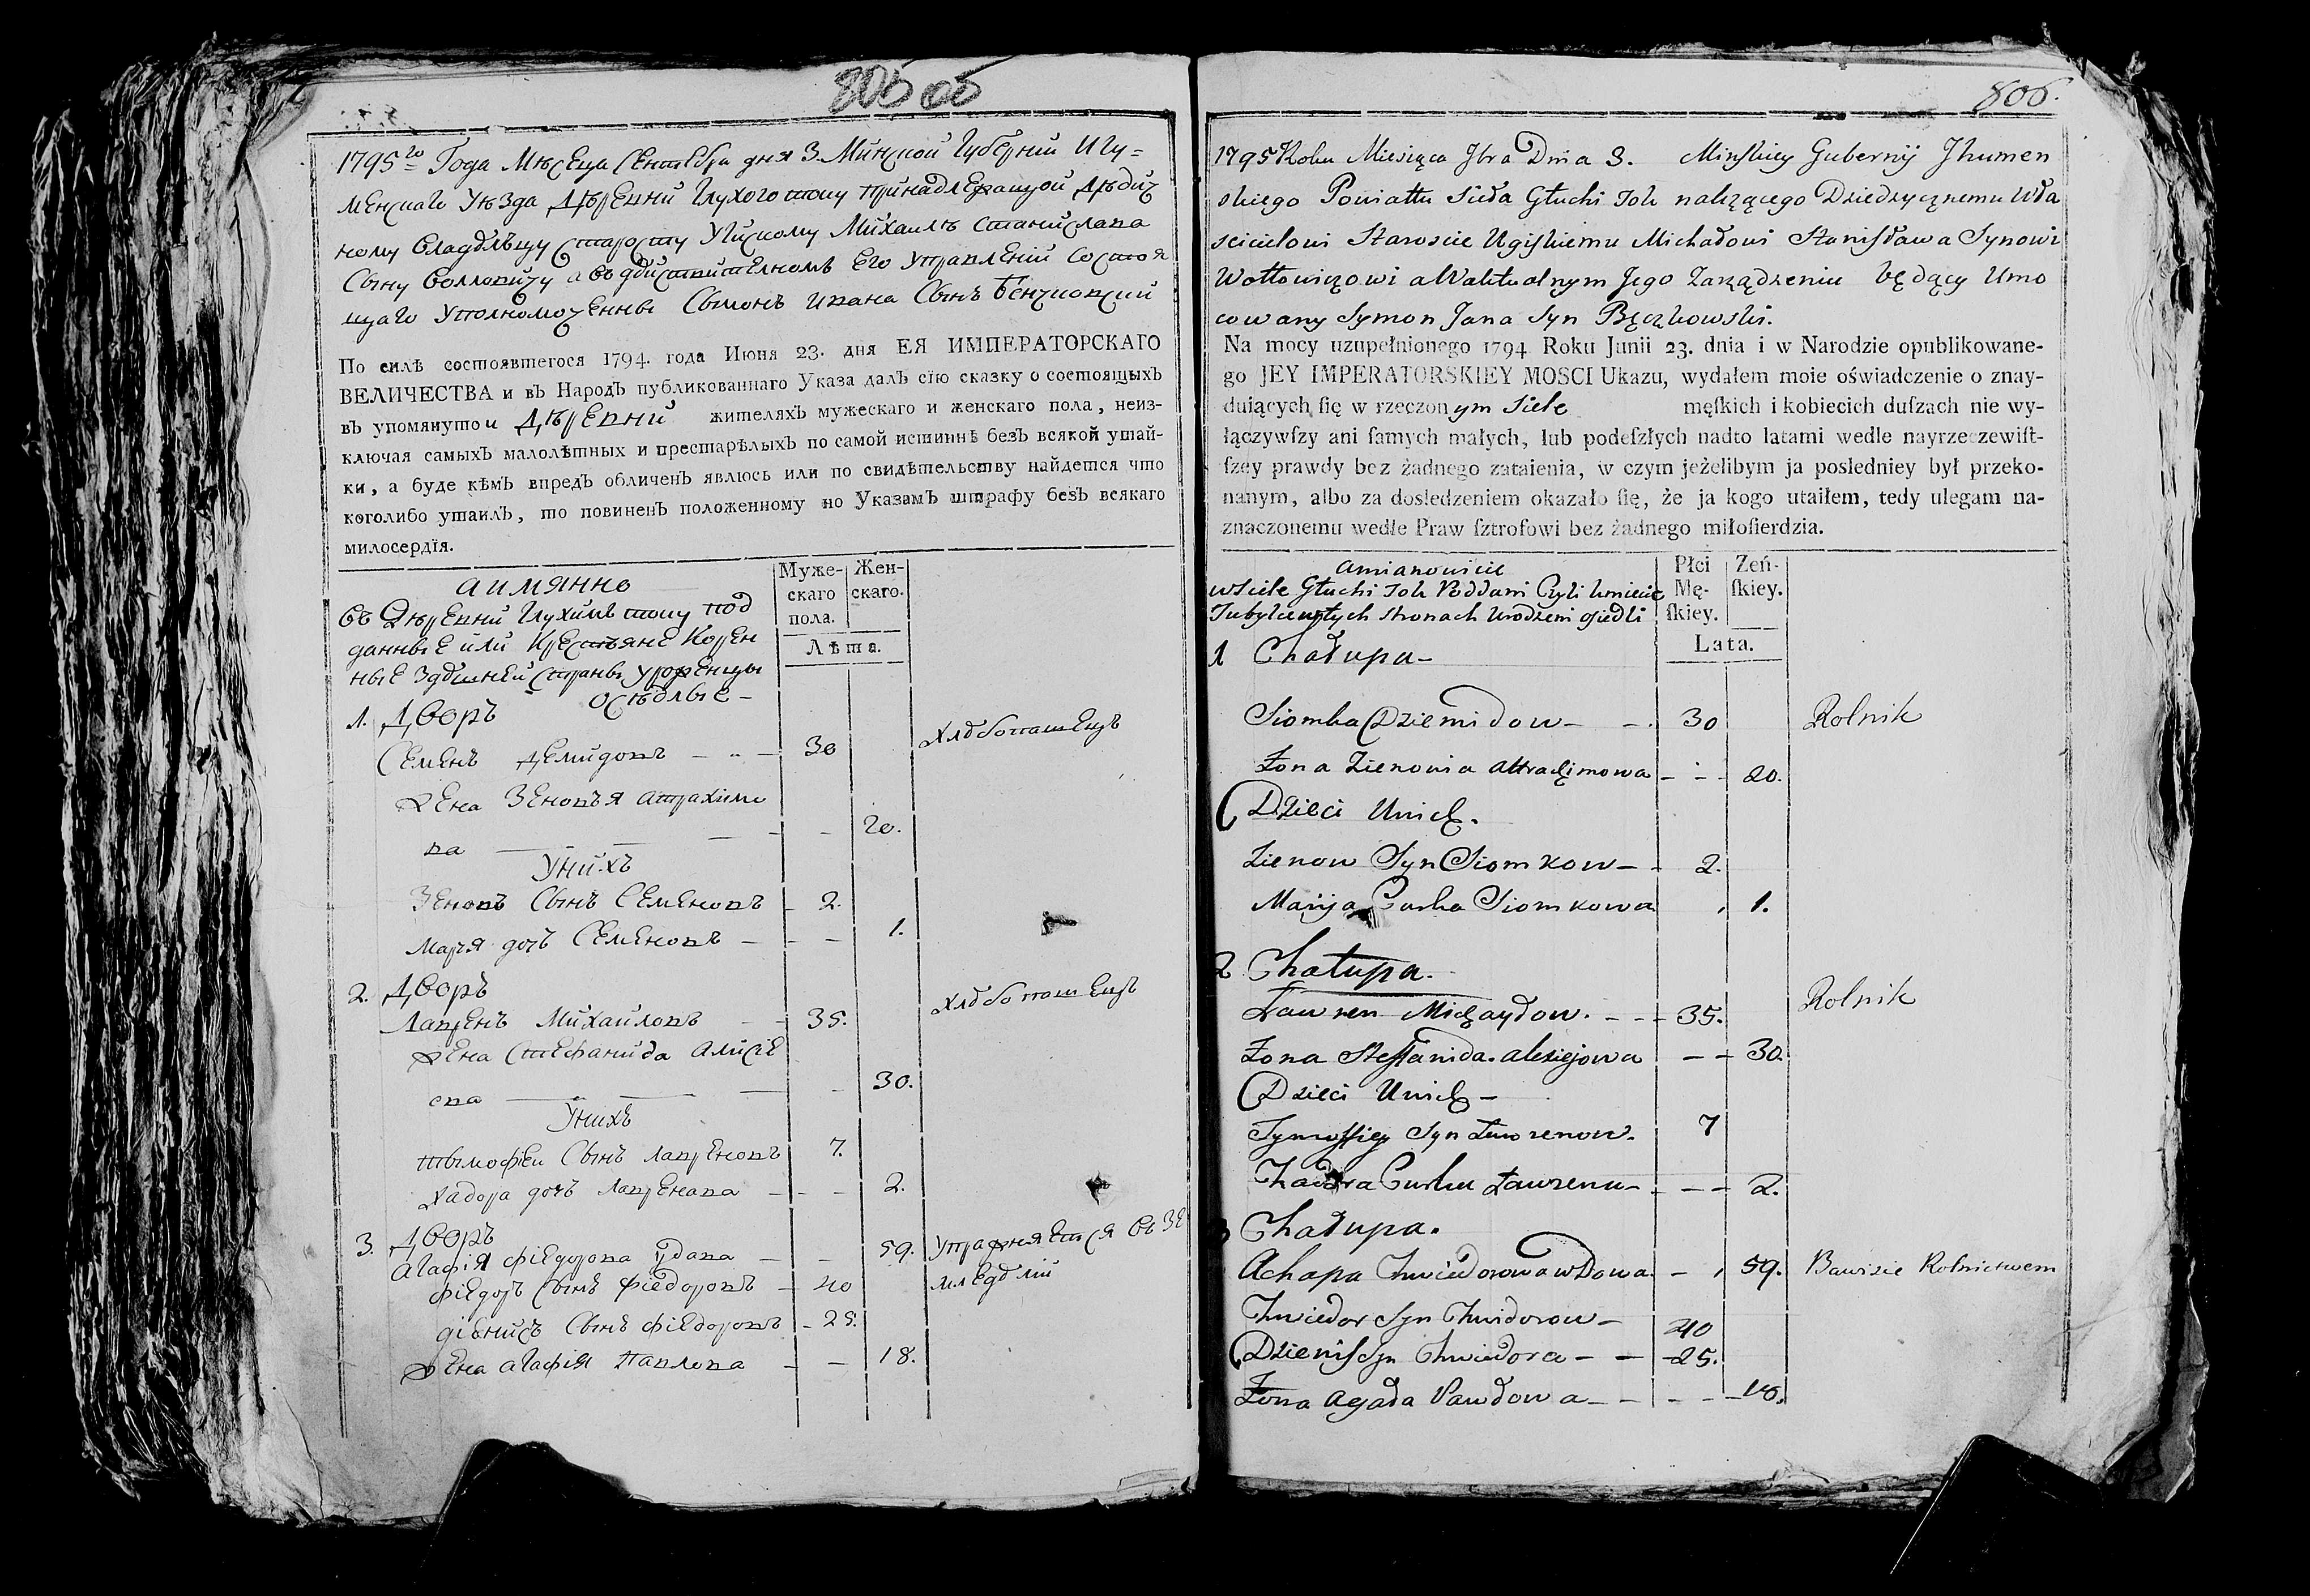 805 об
1795го Года Мѣсеца Сентебра дня 3. Минской Губерніи Игу=
менскаго Уѣзда Дѣревни Глухого току принадлежащой Дѣдич
ному Владѣльцу Старосту Михаилѣ Станислава
Сыну Волловичу а въ дѣиствителномъ Его Управленіи Состоя
щаго Уполномоченны Сымонъ ивана Сынъ Бенчковскии
По силѣ состоявшегося 1794. года Июня 23. дня ЕЯ ИМПЕРАТОРСКАГО
ВЕЛИЧЕСТВА и въ НародЪ публикованнаго Указа далЪ сїю сказку о состоящыхЪ
въ упомянутои Дѣревни жителяхЪ мужескаго и женскаго пола, неиз-
ключая самыхЪ малолѣтных и престарѣлыхЪ по самой истиннѣ безЪ всякой утай-
ки, а буде кѣмЪ впредЪ обличенЪ явлюсь или по свидѣтельству найдется что
коголибо утаилЪ, то повиненЪ положенному по УказамЪ штрафу безЪ всякаго
милосердїя.
аимянно
Муже-
скаго
пола.
Жен-
скаго.
Лѣта.
Въ Дѣревни Глухимъ току под
данные или Крестьяне Корен
ные Здѣшнеи Страны урожѣнцы
осѣдлые –
1. Дворъ
Семенъ Демидовъ – – – 30 хлѣбопашецъ
жена Зеновья атрахимо
ва – – – 20.
Унихъ
Зеновъ Сынъ Семеновъ – 2.
Марья дочъ Семеновъ – – – 1.
2. Дворъ
Лавренъ Михаиловъ – – 35. хлѣбопашецъ
жена Стефанида алисіе
ева – – – 30.
Унихъ
тымофеи Сынъ Лавреновъ 7.
хадора дочъ Лавренава – – – 2.
3. Дворъ
агафія фіедорова Вдава – – 59. упражняется въ зе
фіедоръ Сынъ фіедоровъ – 40 мледѣліи
діенисъ Сынъ фіедоровъ – 25.
жена агафія павлова – – 18.
806.
1795 Roku Miesiąca 7bra Dnia 3. Minskiey Gubernij Jhumen
skiego Powiattu Sieła Głuchi Tok należącego Dziedzycznemu Wła
scicielowi Staroscie Ugiskiemu Michałowi Stanisława Synowi
Wołłowiczowi a Waktualnym Jego Zarządzeniu będący Umo
cowany Symon Jana Syn Bęczkowski.
Na mocy uzupełnionego 1794 Roku Junii 23. dnia i w Narodzie opublikowane-
go JEY IMPERATORSKIEY MOSCI Ukazu, wydałem moie oświadczenie o znay-
duiących ſię w rzeczonym Siele męſkich i kobiecich duſzach nie wy-
łączywſzy ani ſamych małych, lub podeſzłych nadto latami wedle nayrzeczewiſt-
ſzey prawdy bez żadnego zataienia, w czym jeżelibym ja posledniey był przeko-
nanym, albo za dosledzeniem okazało ſię, że ja kogo utaiłem, tedy ulegam na-
znaczonemu wedle Praw ſztrofowi bez żadnego miłoſierdzia.
amianowicie
Płci
Mę-
ſkiey.
Zeń-
ſkiey.
Lata.
w Siele Głuchi Tok Poddani Czyli kmiecie
Tubylcy wtych stronach Urodzeni osiedli
1 Chałupa –
Siomka Dziemidow – – 30 Rolnik
Żona Zienowia attrachimowa – – 20.
Dzieci Unich.
Zienow Syn Siomkow – – 2.
Marija Curka Siomkowa 1.
2 Chałupa.
Ławren Michayłow. – – – 35. Rolnik
Żona Steffanida. alexiejowa – – 30.
Dzieci Unich –
Tymoffiey Syn Ławrenow. 7
Chadora Curka Ławrenu – – – 2.
3 Chałupa.
Achapa Chwiedorowa wdowa. – 59. Bawi sie Rolnictwem
Chwiedor Syn Chwidorow – 40
Dzienis Syn Chwiedora – – 25.
Żona Agada Pawłowa – – – – 18.